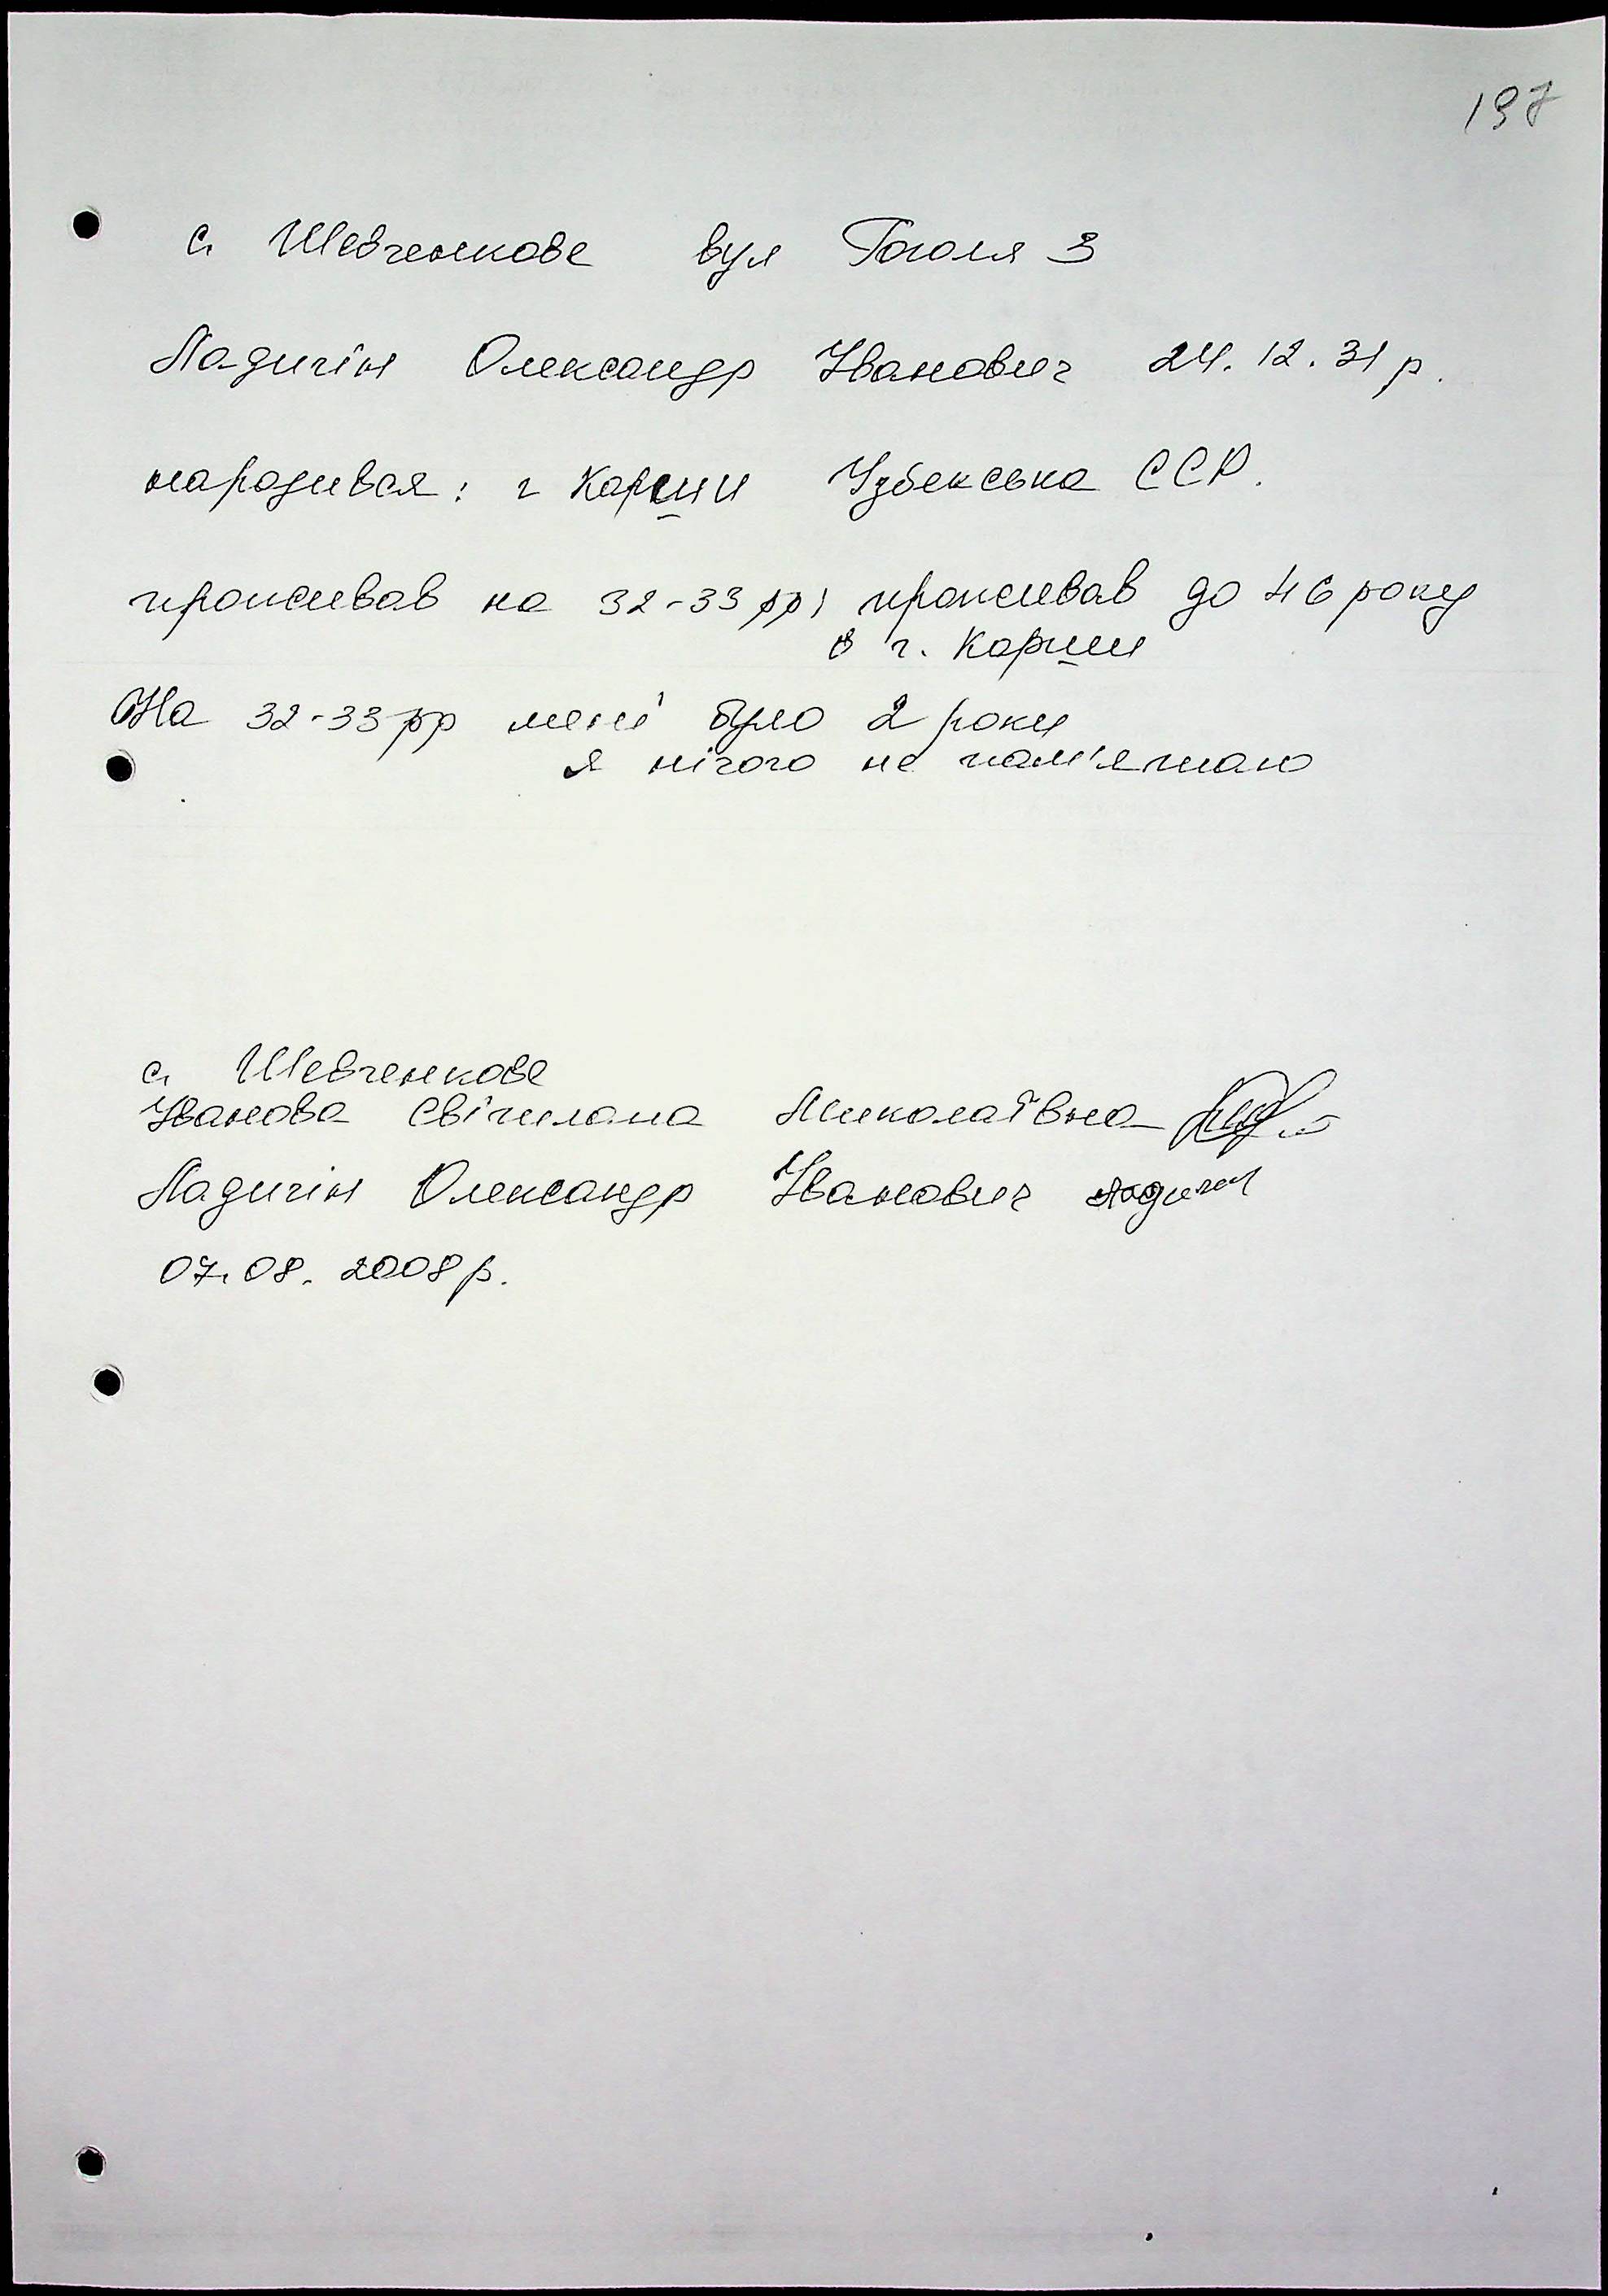 197
с. Шевченкове вул Гоголя 3
Ладигін Олександр Іванович 24.12.31 р.
народився: г Карши Узбекська ССР.
проживав на 32-33 рр; проживав до 46 року
в г. Карши
На 32-33 рр мені було 2 роки
я нічого не пам'ятаю
с. Шевченкове
Іванова Світлана Миколаївна
Ладигін Олександр Іванович Ладигін
07.08.2008 р.